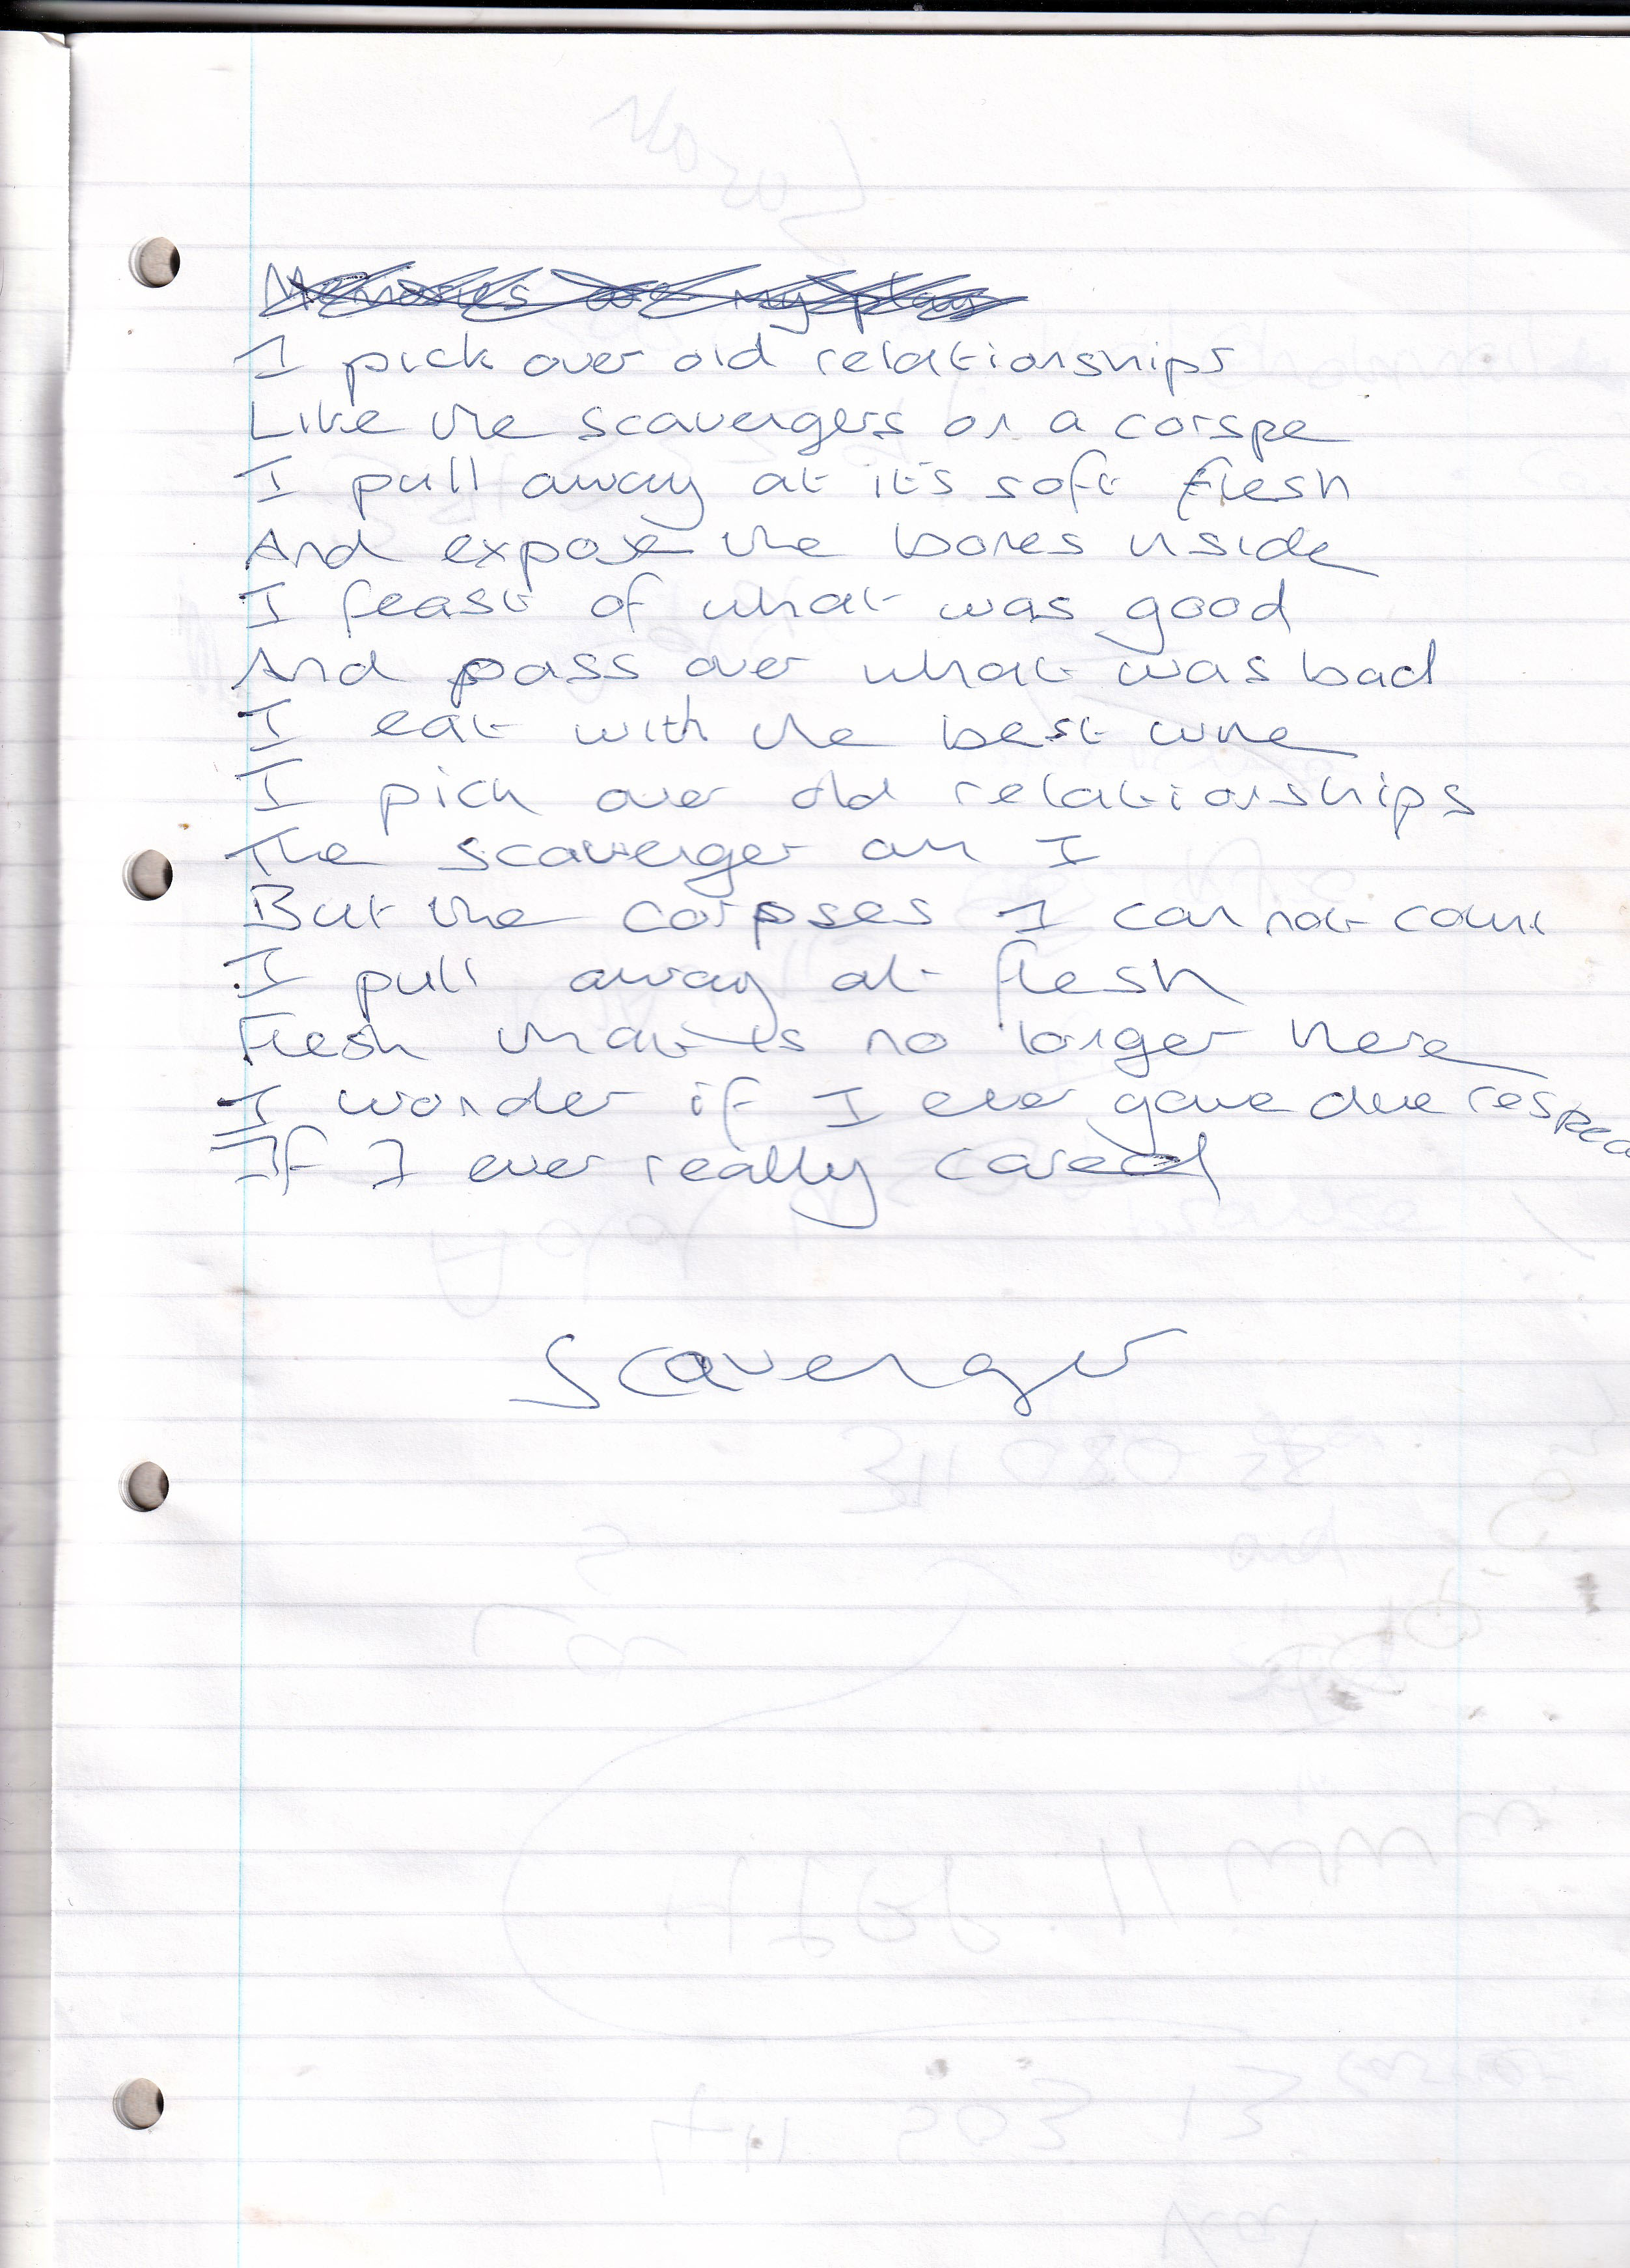 Memories are my play
I pick over old relationships
Like the scavengers on a corspe
I pull away at it's soft flesh
And expose the bones inside
I feast of what was good
And pass over what was bad
I eat with the best wine
I pick over old relationships
The scavenger am I
But the corpses I can not count
I pull away at flesh
Flesh that is no longer here
I wonder if I ever gave due respec
If I ever really cared
Scavenger